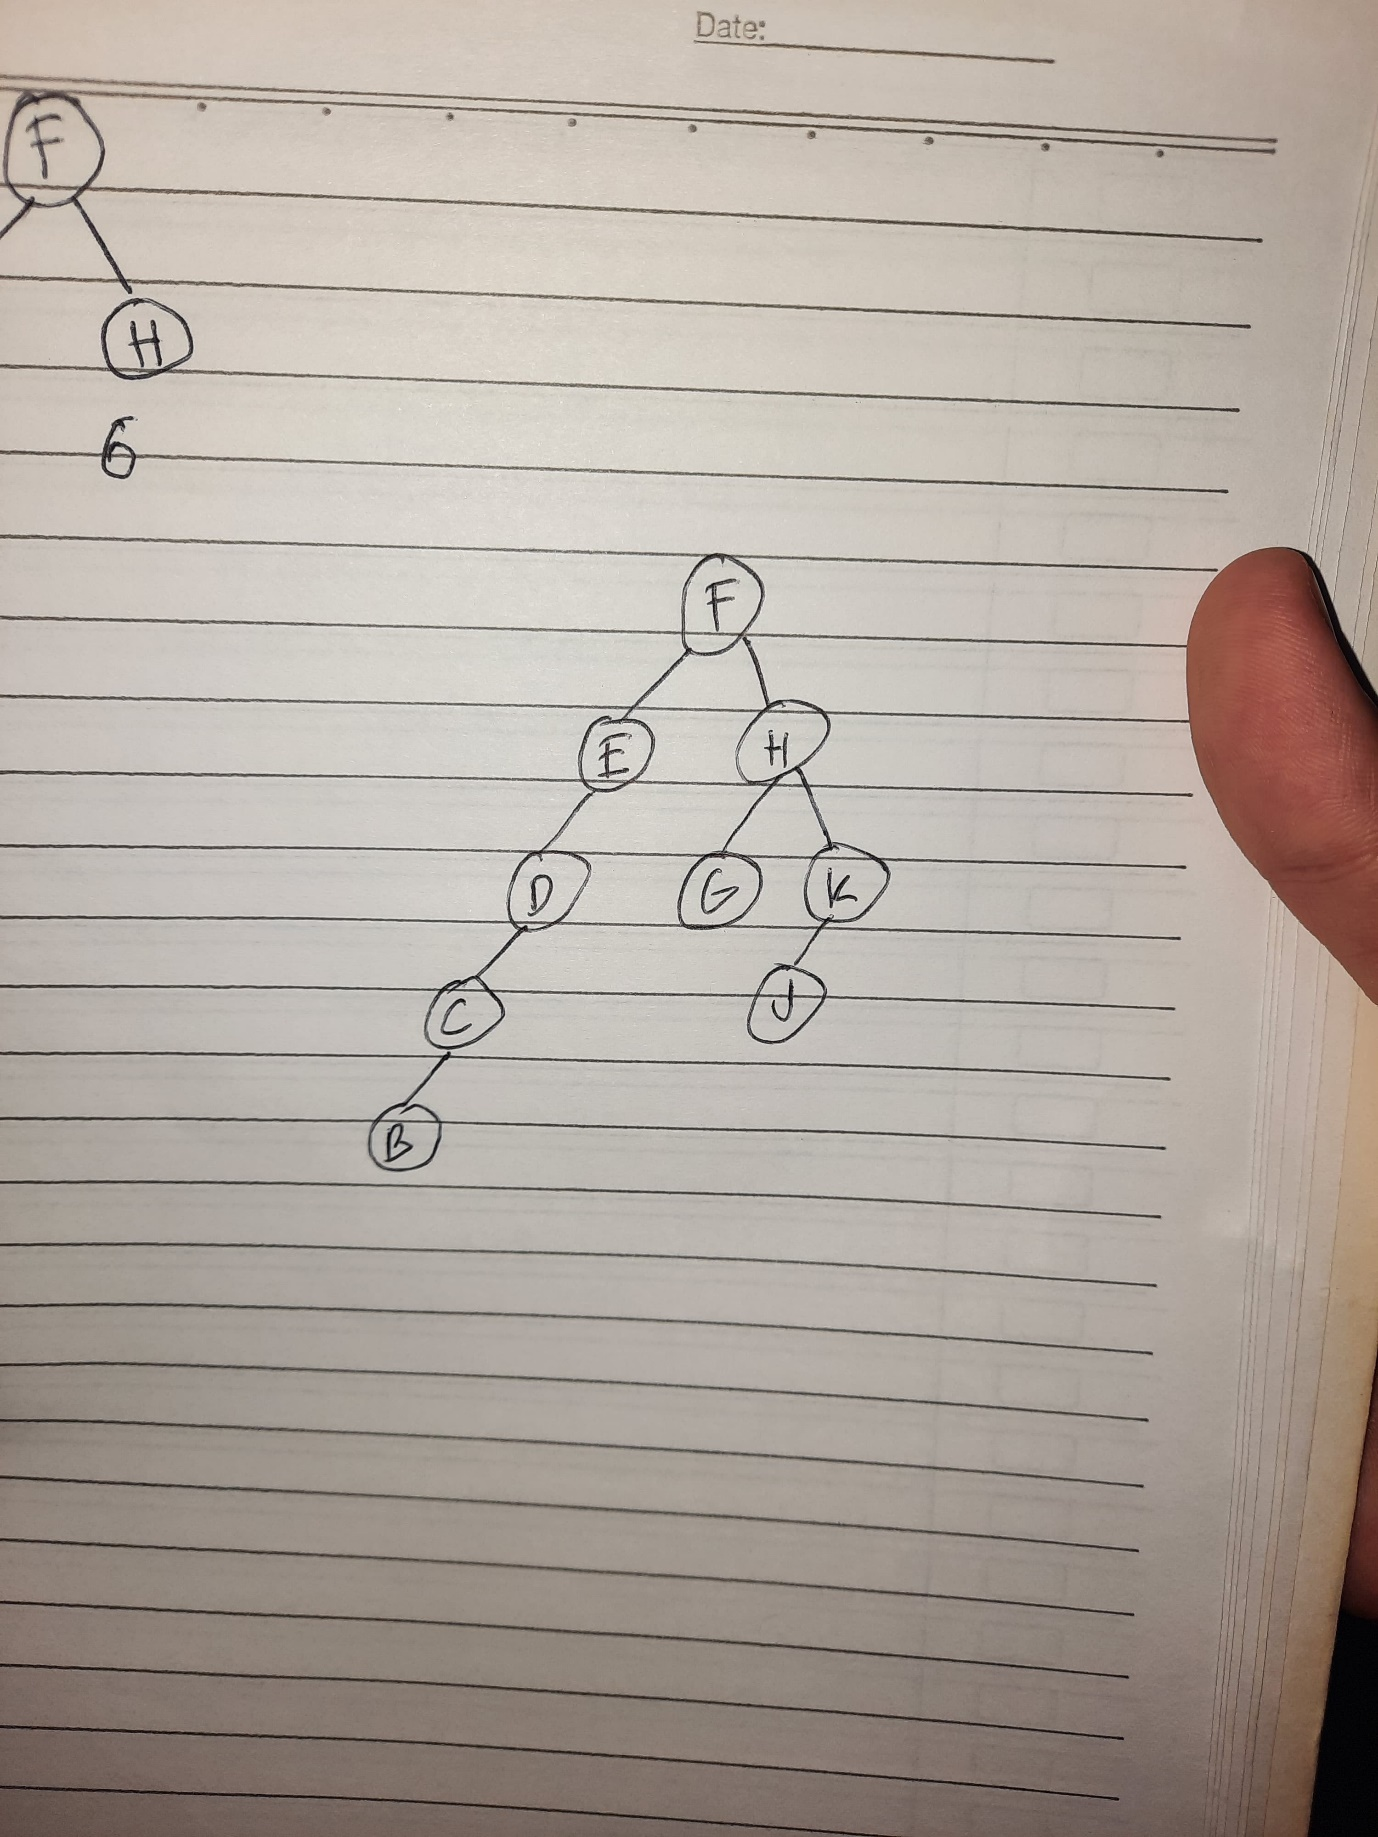 Date:
F
H
6
F
E H
D G K
C J
B